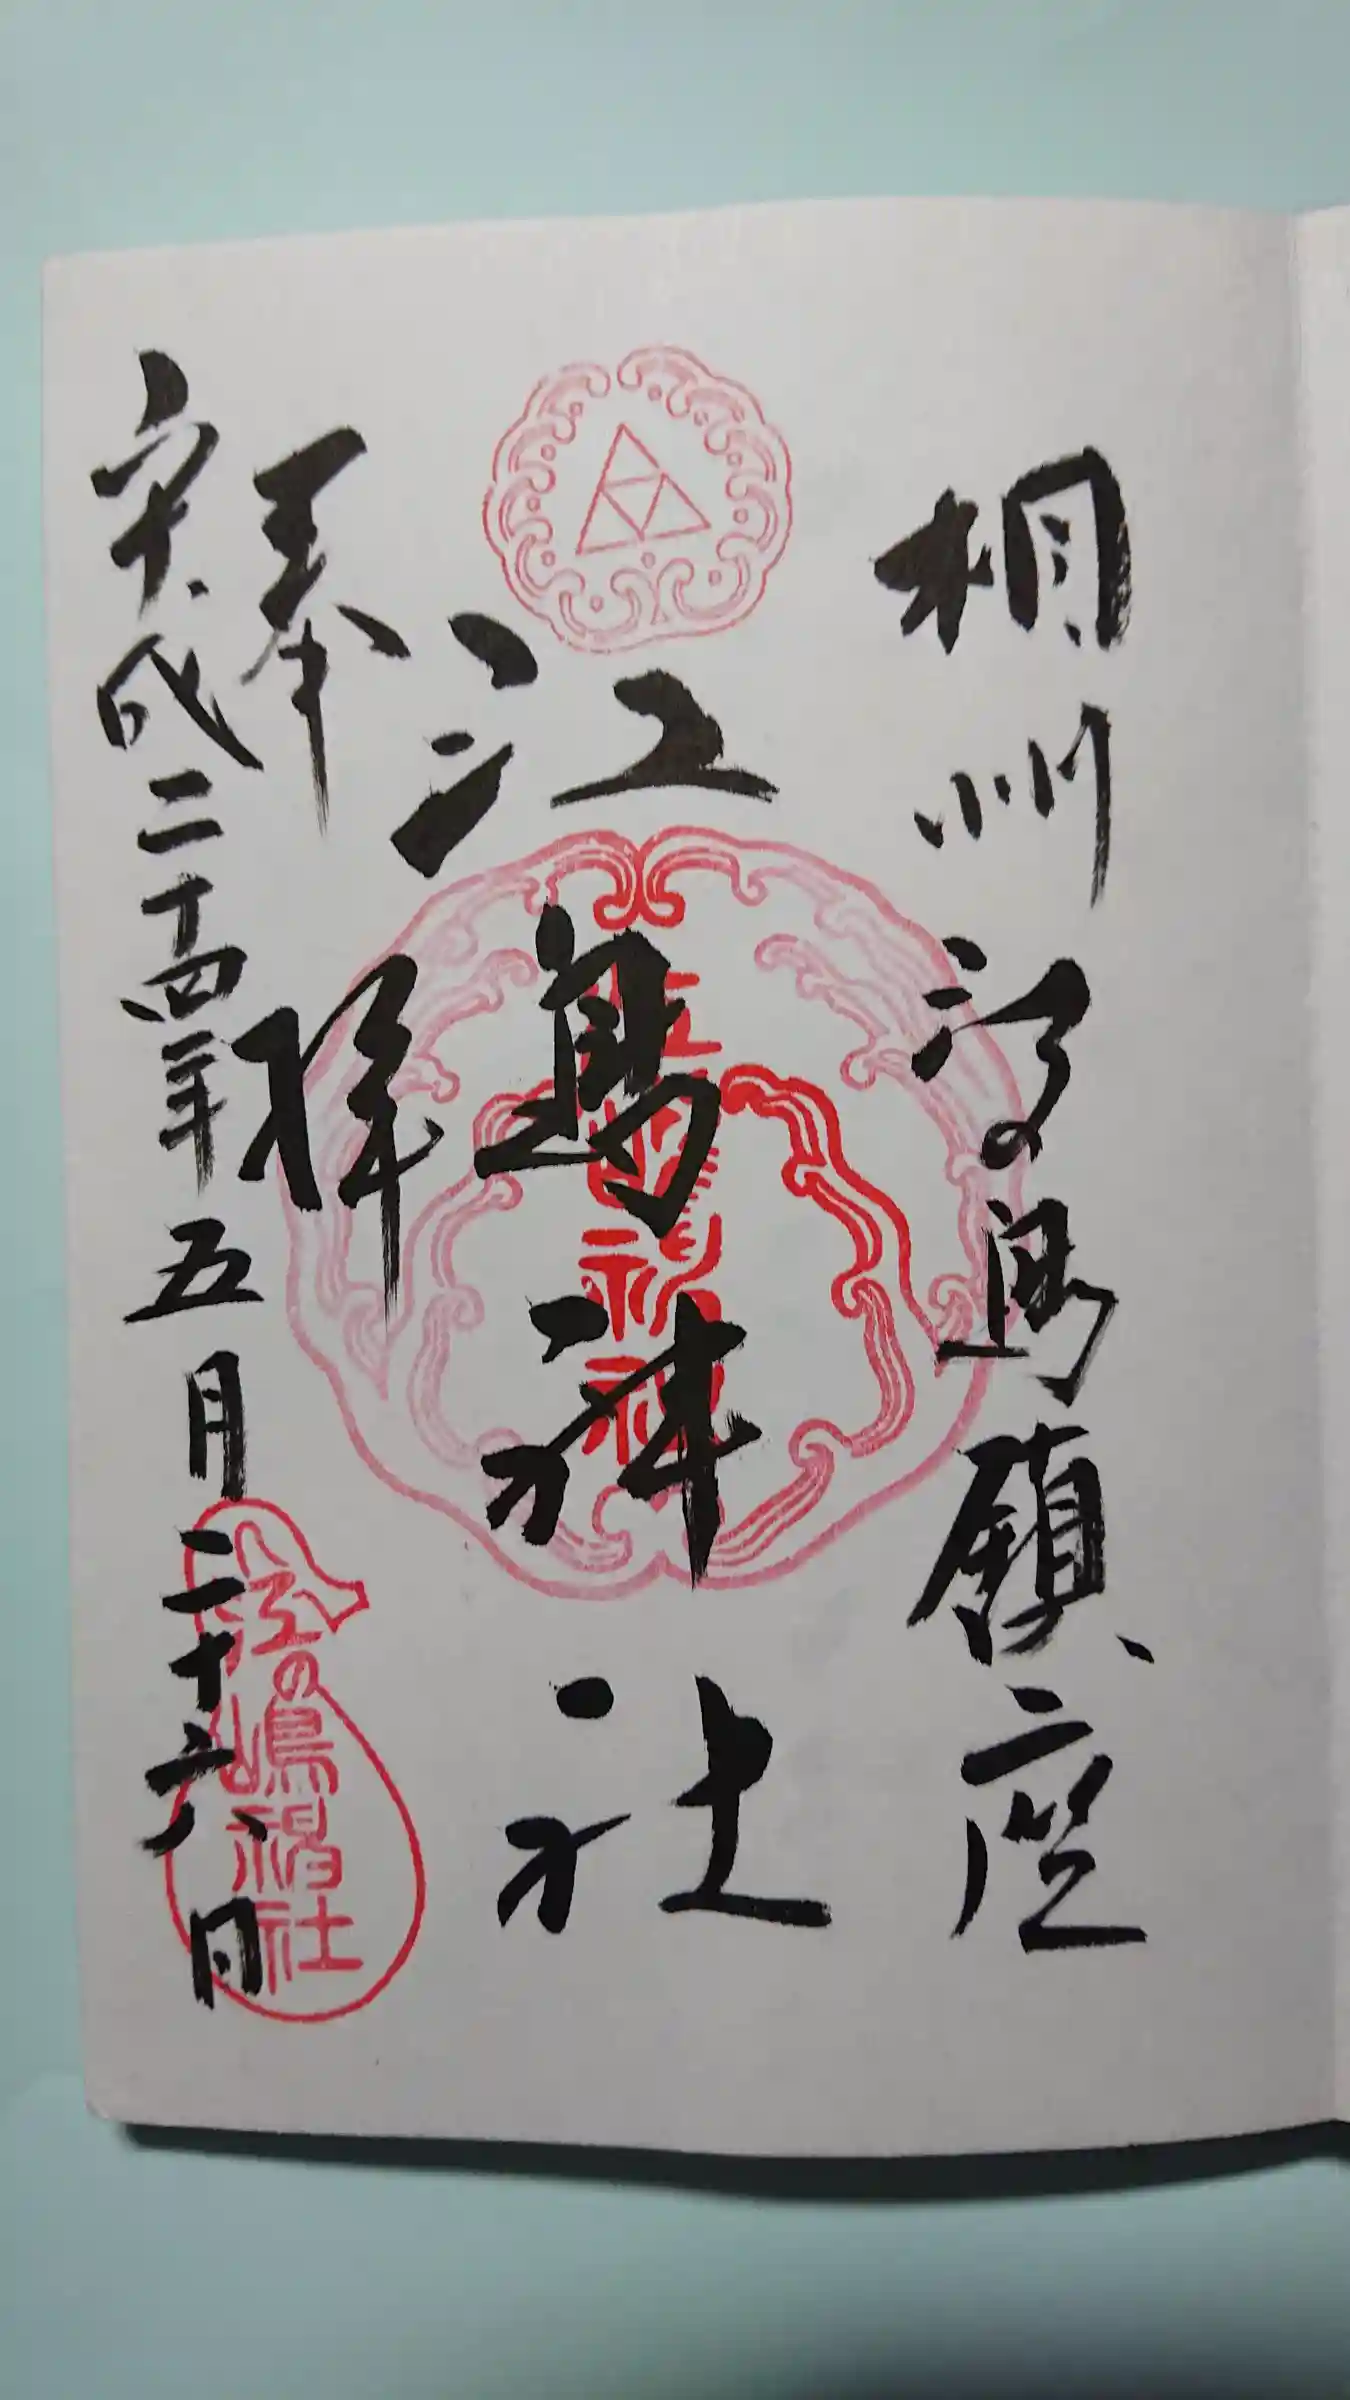 相州江の島鎮座
江島神社
奉拝
平成二十四年五月二十六日
江の嶋福社